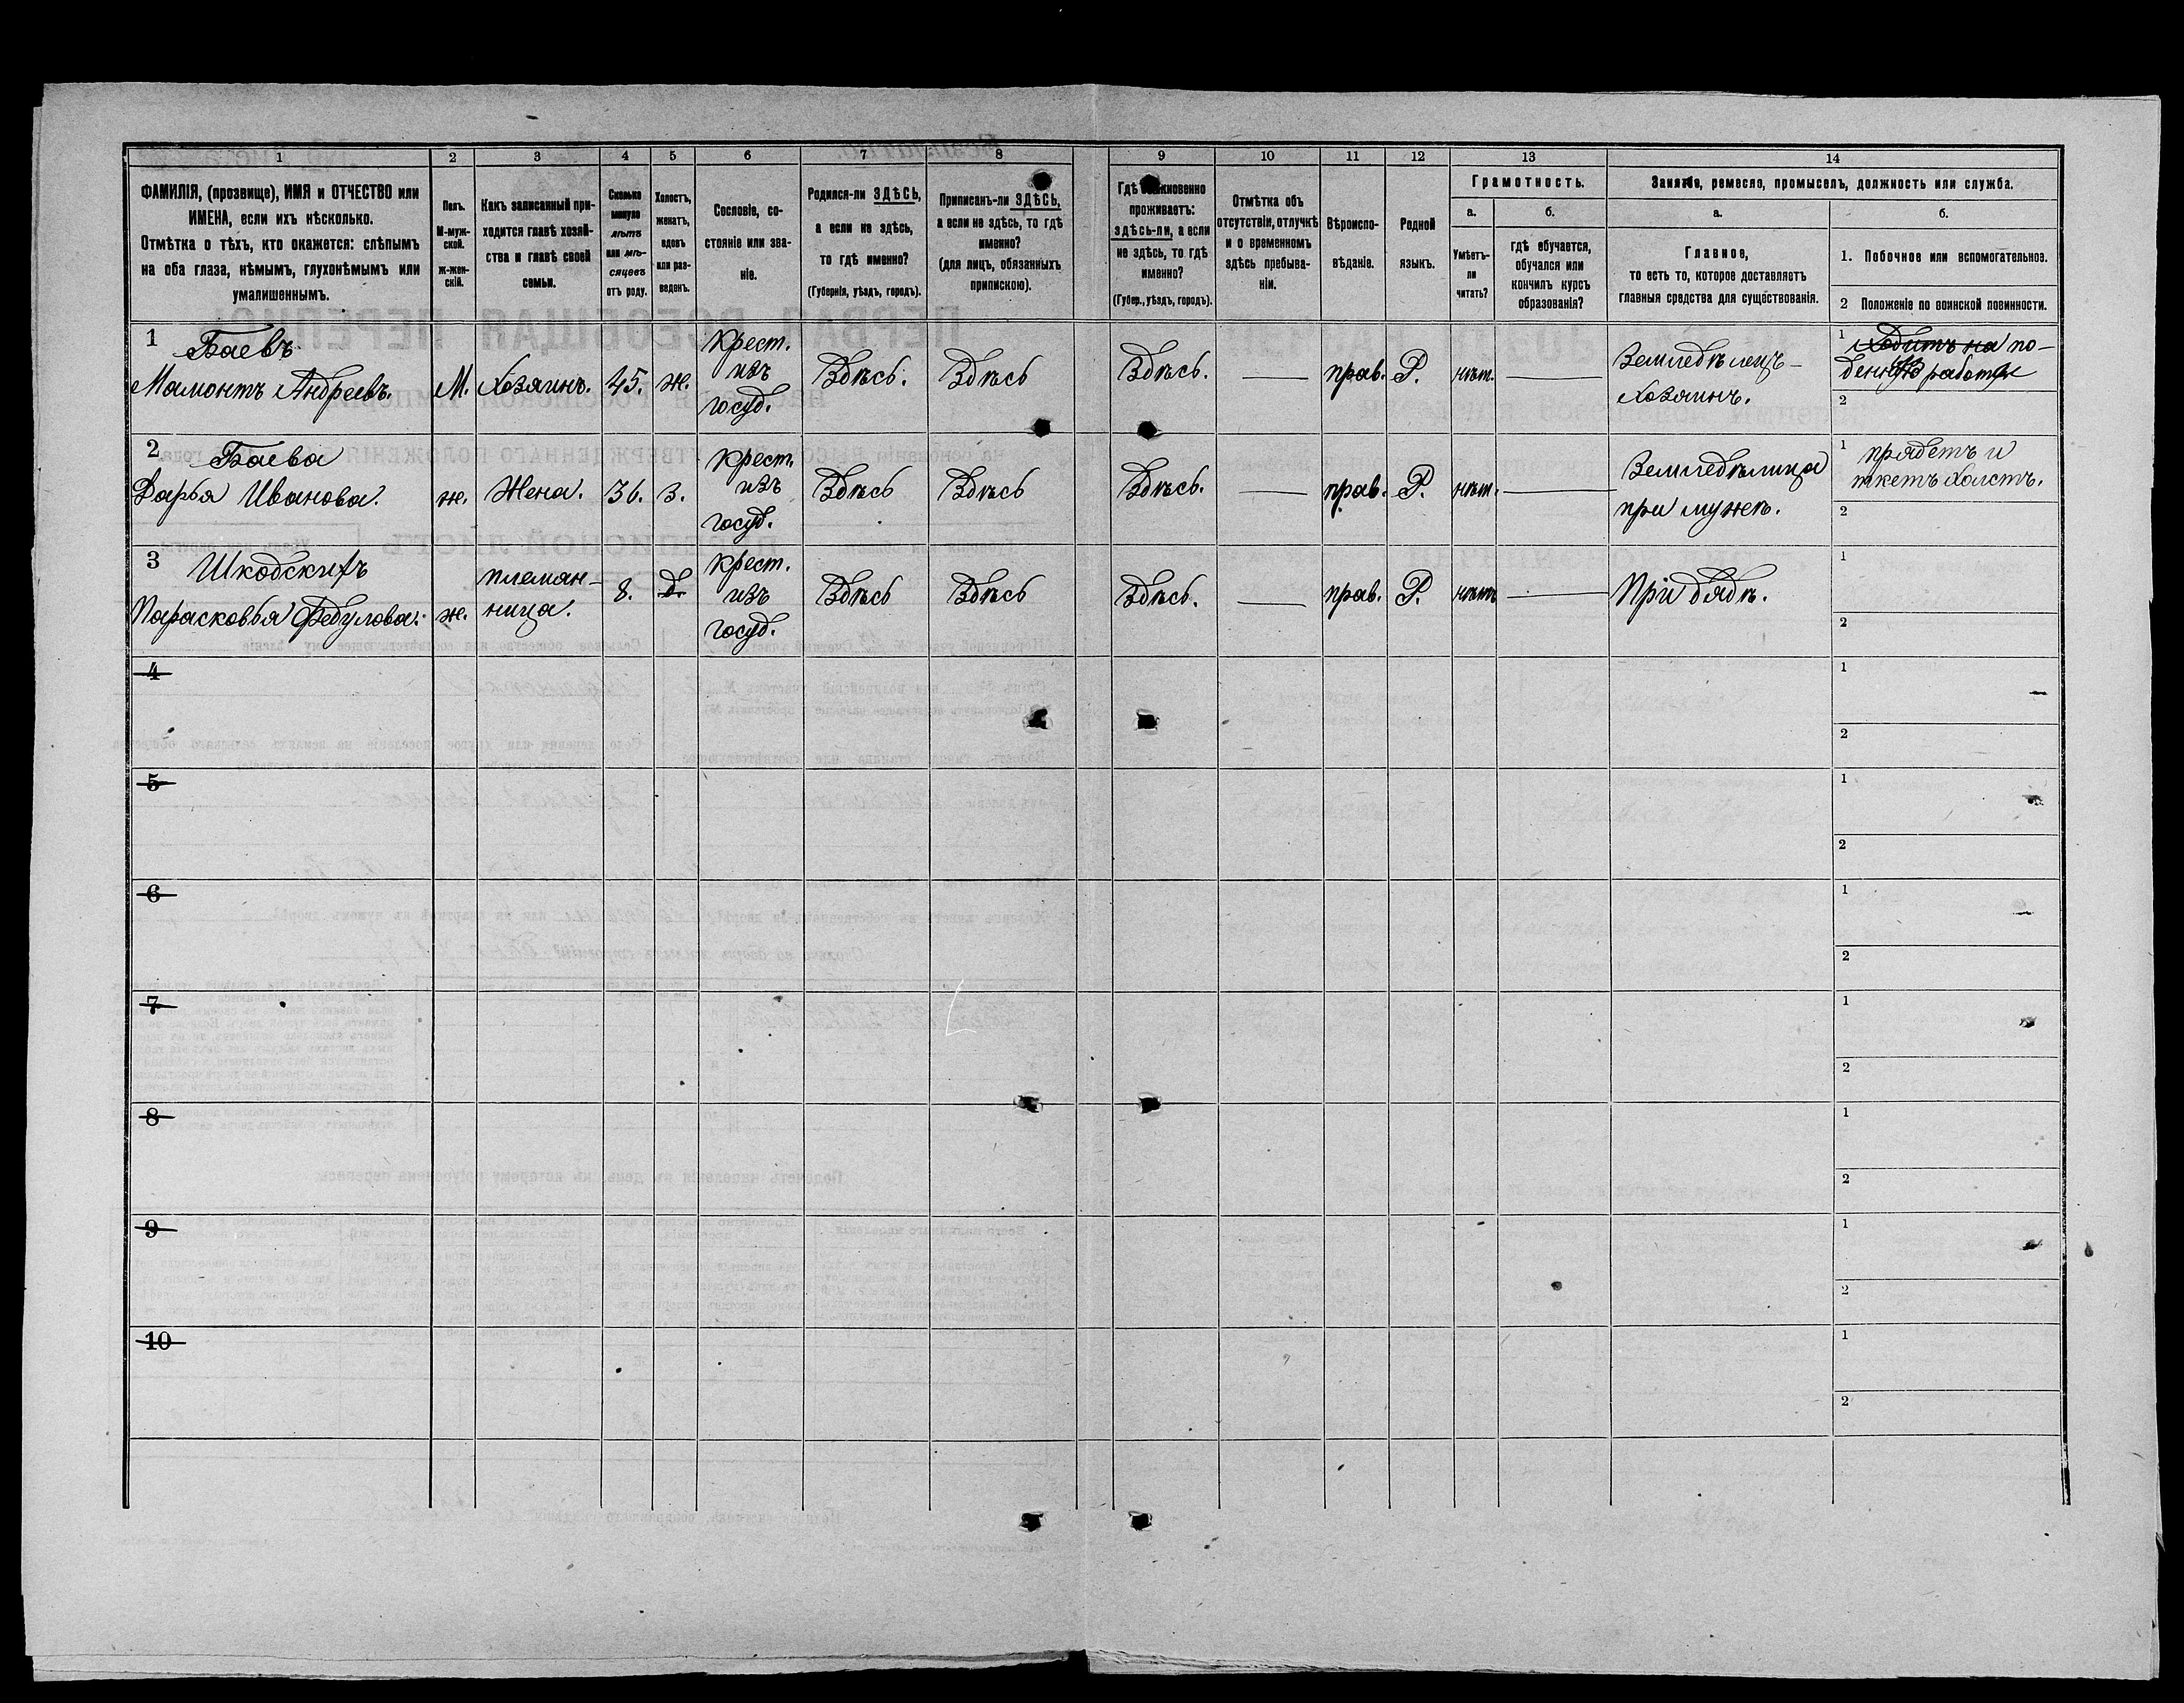 1 2 3 4 5 6 7 8 9 10 11 12 13 14
ФАМИЛІЯ, (прозвище), ИМЯ и ОТЧЕСТВО или
ИМЕНА, если ихъ нѣсколько.
Отмѣтка о тѣхъ, кто окажется: слѣпымъ
на оба глаза, нѣмымъ, глухонѣмымъ или
умалишеннымъ.
Полъ.
М-муж-
ской.
ж-жен-
скій.
Какъ записанный при-
ходится главѣ хозяй-
ства и главѣ своей
семьи.
Сколько
минуло
лѣтъ
или мѣ-
сяцевъ
отъ роду.
Холостъ,
женатъ,
вдовъ
или раз-
веденъ.
Сословіе, со-
стояніе или зва-
ніе.
Родился-ли ЗДѢСЬ,
а если не здѣсь,
то гдѣ именно?
(Губернія, уѣздъ, городъ).
Приписанъ-ли ЗДѢСЬ,
а если не здѣсь, то гдѣ
именно?
(для лицъ, обязанныхъ
припискою).
Гдѣ обыкновенно
проживаетъ:
здѣсь-ли, а если
не здѣсь, то гдѣ
именно?
(Губер., уѣздъ, городъ).
Отмѣтка объ
отсутствіи, отлучкѣ
и о временномъ
здѣсь пребыва-
ніи.
Вѣроиспо-
вѣданіе.
Родной
языкъ.
Грамотность.
а.
Умѣетъ-
ли
читать?
б.
гдѣ обучается,
обучался или
кончилъ курсъ
образованія?
Занятіе, ремесло, промыселъ, должность или служба.
а.
Главное,
то есть то, которое доставляетъ
главныя средства для существованія.
б.
1. Побочное или вспомогательное.
2 Положеніе по воинской повинности.
1 Баевъ
Мамонтъ Андреевъ.
М.
Хозяинъ.
45.
ж.
Крест.
изъ
госуд.
Здѣсь.
Здѣсь
Здѣсь.
—
прав.
Р.
нѣт.
—
Земледѣлецъ-
хозяинъ.
1 Ходитъ на по-
работы
2
2 Баева
Дарья Иванова.
ж.
Жена.
36.
З.
Крест.
изъ
госуд.
Здѣсь
Здѣсь
Здѣсь.
—
прав.
Р.
нѣт.
—
Земледѣлица
при мужѣ.
1 прядетъ и
ткетъ холстъ.
2
3 Шкодскихъ
Парасковья Федулова.
ж.
племян-
ница.
8.
д.
Крест.
изъ
госуд.
Здѣсь
Здѣсь
Здѣсь.
—
прав.
Р.
нѣтъ
—
При дядѣ.
1
2
4
1
2
5
1
2
6
1
2
7
1
2
8
1
2
9
1
2
10
1
2